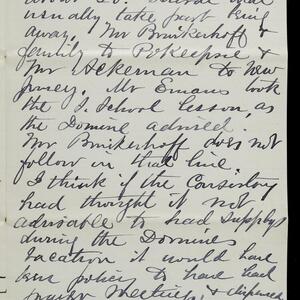 usually take part being
away. Mr Brinkerhoff &
family to Pokeepsie &
Mr Ackerman to New
Jersey. Mr Emans took
the S. School lesson, as
the Domine advised.
Mr Brinkerhoff does not
follow in that line.
I think if the Consistory
had thought it not
advisable to had supplys
during the Domines
vacation it would have
been policy to have had
prayer meetings &